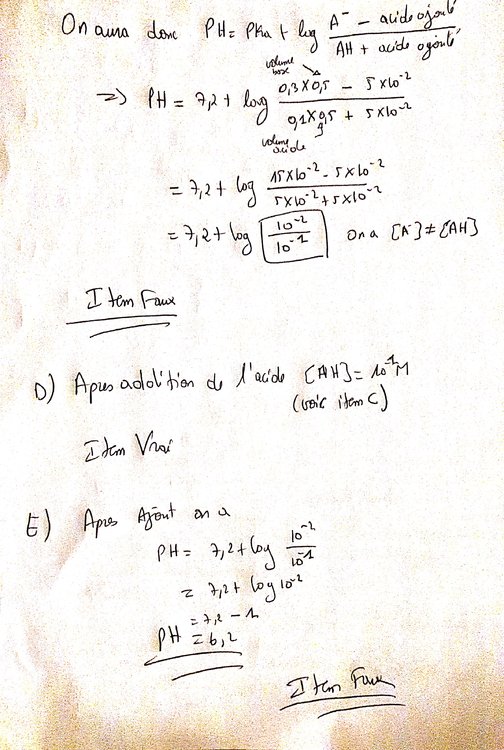 On aura donc PH = PKa + log (A⁻ - acide ajouté) / (AH + acide ajouté)
volume base
=> PH = 7,2 + log (0,3 x 0,5 - 5 x 10⁻²) / (0,1 x 0,5 + 5 x 10⁻²)
volume acide
= 7,2 + log (15 x 10⁻² - 5 x 10⁻²) / (5 x 10⁻² + 5 x 10⁻²)
= 7,2 + log 10⁻² / 10⁻¹ on a [A⁻] ≠ [AH]
Item Faux
D) Apres addition de l'acide [AH] = 10⁻¹ M
(voir item C)
Item Vrai
E) Apres Ajout on a
PH = 7,2 + log 10⁻² / 10⁻¹
= 7,2 + log 10⁻²
= 7,2 - 1
PH = 6,2
Item Faux